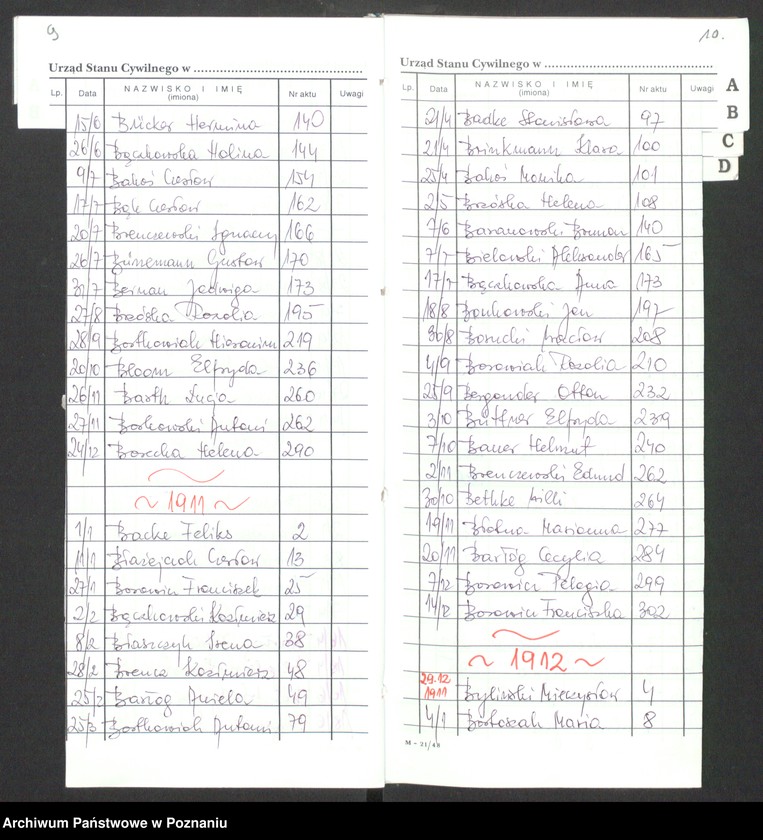 9
Urząd Stanu Cywilnego w
Lp. Data NAZWISKO I IMIĘ (imiona) Nr aktu Uwagi
15/6 Bücker Hermina 140
26/6 Bączkowska Halina 144
9/7 Bakoś Czesław 154
17/7 Bąk Czesław 162
20/7 Brenczewski Ignacy 166
26/7 Bünemann Gustaw 170
31/7 Beiman Jadwiga 173
27/8 Brzóska Rozalia 195
28/9 Bartkowiak Hieronim 219
20/10 Bloom Elfryda 236
26/11 Barth Łucja 260
27/11 Borkowski Antoni 262
24/12 Borecka Helena 290
~ 1911 ~
1/1 Backe Feliks 2
11/1 Błażejczak Czesław 13
27/1 Borowicz Franciszek 25
2/2 Bączkowski Kazimierz 29
8/2 Błaszczyk Irena 38
28/2 Brencz Kazimierz 48
25/2 Bartóg Aniela 49
25/3 Bartkowiak Antoni 79
10.
Urząd Stanu Cywilnego w
Lp. Data NAZWISKO I IMIĘ (imiona) Nr aktu Uwagi
A
B
C
D
21/4 Badke Stanisława 97
21/4 Brinkmann Klara 100
25/4 Bakoś Monika 101
2/5 Brzóska Helena 108
7/6 Baranowski Brunon 140
7/7 Bielawski Aleksander 165
17/7 Bączkowska Anna 173
18/8 Bonkowski Jan 197
30/8 Borucki Wacław 208
4/9 Borowiak Rozalia 210
25/9 Bergander Otton 232
3/10 Büttner Elfryda 239
7/10 Bauer Helmut 240
2/11 Brenczewski Edmund 262
30/10 Bethke Willi 264
19/11 Białas Marianna 277
20/11 Bartóg Cecylia 284
7/12 Borowicz Pelagia 299
14/12 Borowicz Franciszka 302
~ 1912 ~
29.12 1911 Byliński Mieczysław 4
4/1 Bartoszak Maria 8
M - 21/48
Archiwum Państwowe w Poznaniu